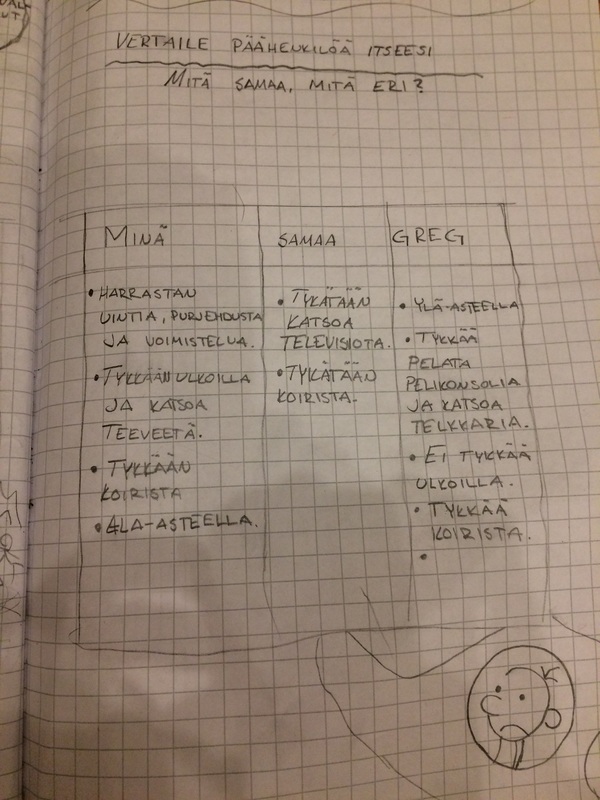 VERTAILE PÄÄHENKILÖÄ ITSEESI
MITÄ SAMAA, MITÄ ERI?
MINÄ
• HARRASTAN
UINTIA, PURJEHDUSTA
JA VOIMISTELUA.
• TYKKÄÄN ULKOILLA
JA KATSOA
TEEVEETÄ.
• TYKKÄÄN
KOIRISTA
• ALA-ASTEELLA.
SAMAA
• TYKÄTÄÄN
KATSOA
TELEVISIOTA.
• TYKÄTÄÄN
KOIRISTA.
GREG
• YLÄ-ASTEELLA
• TYKKÄÄ
PELATA
PELIKONSOLIA
JA KATSOA
TELKKARIA.
• EI TYKKÄÄ
ULKOILLA.
• TYKKÄÄ
KOIRISTA.
•